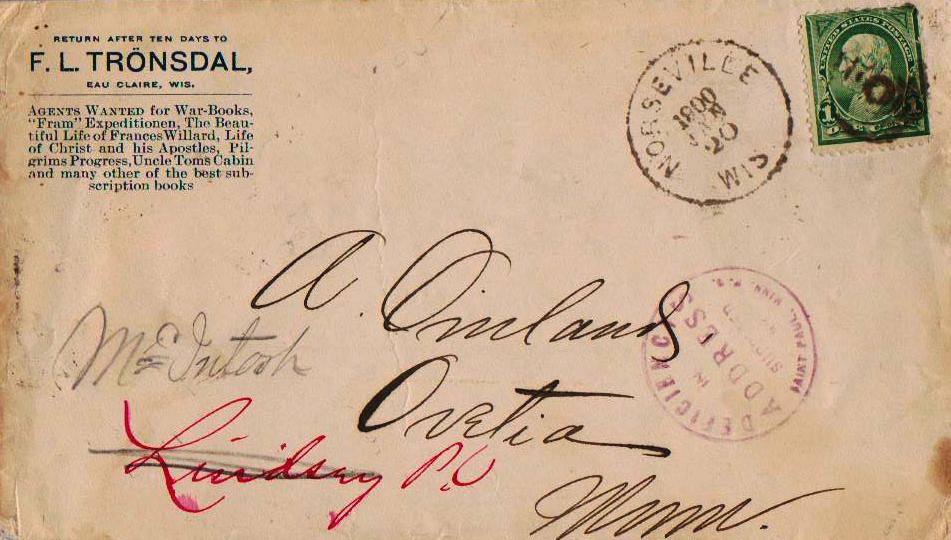 RETURN AFTER TEN DAYS TO
F. L. TRÖNSDAL,
EAU CLAIRE, WIS.
AGENTS WANTED for War-Books,
"Fram" Expeditionen, The Beau-
tiful Life of Frances Willard, Life
of Christ and his Apostles, Pil-
grims Progress, Uncle Toms Cabin
and many other of the best sub-
scription books
NORSEVILLE
1900
20
WIS
UNITED STATES POSTAGE
A. Omland
McIntosh
Ovetia
Lindsay P.O
Minn.
DEFICIENCY
IN
ADDRESS
SUPPLIED
SAINT PAUL, MINN. P.O.